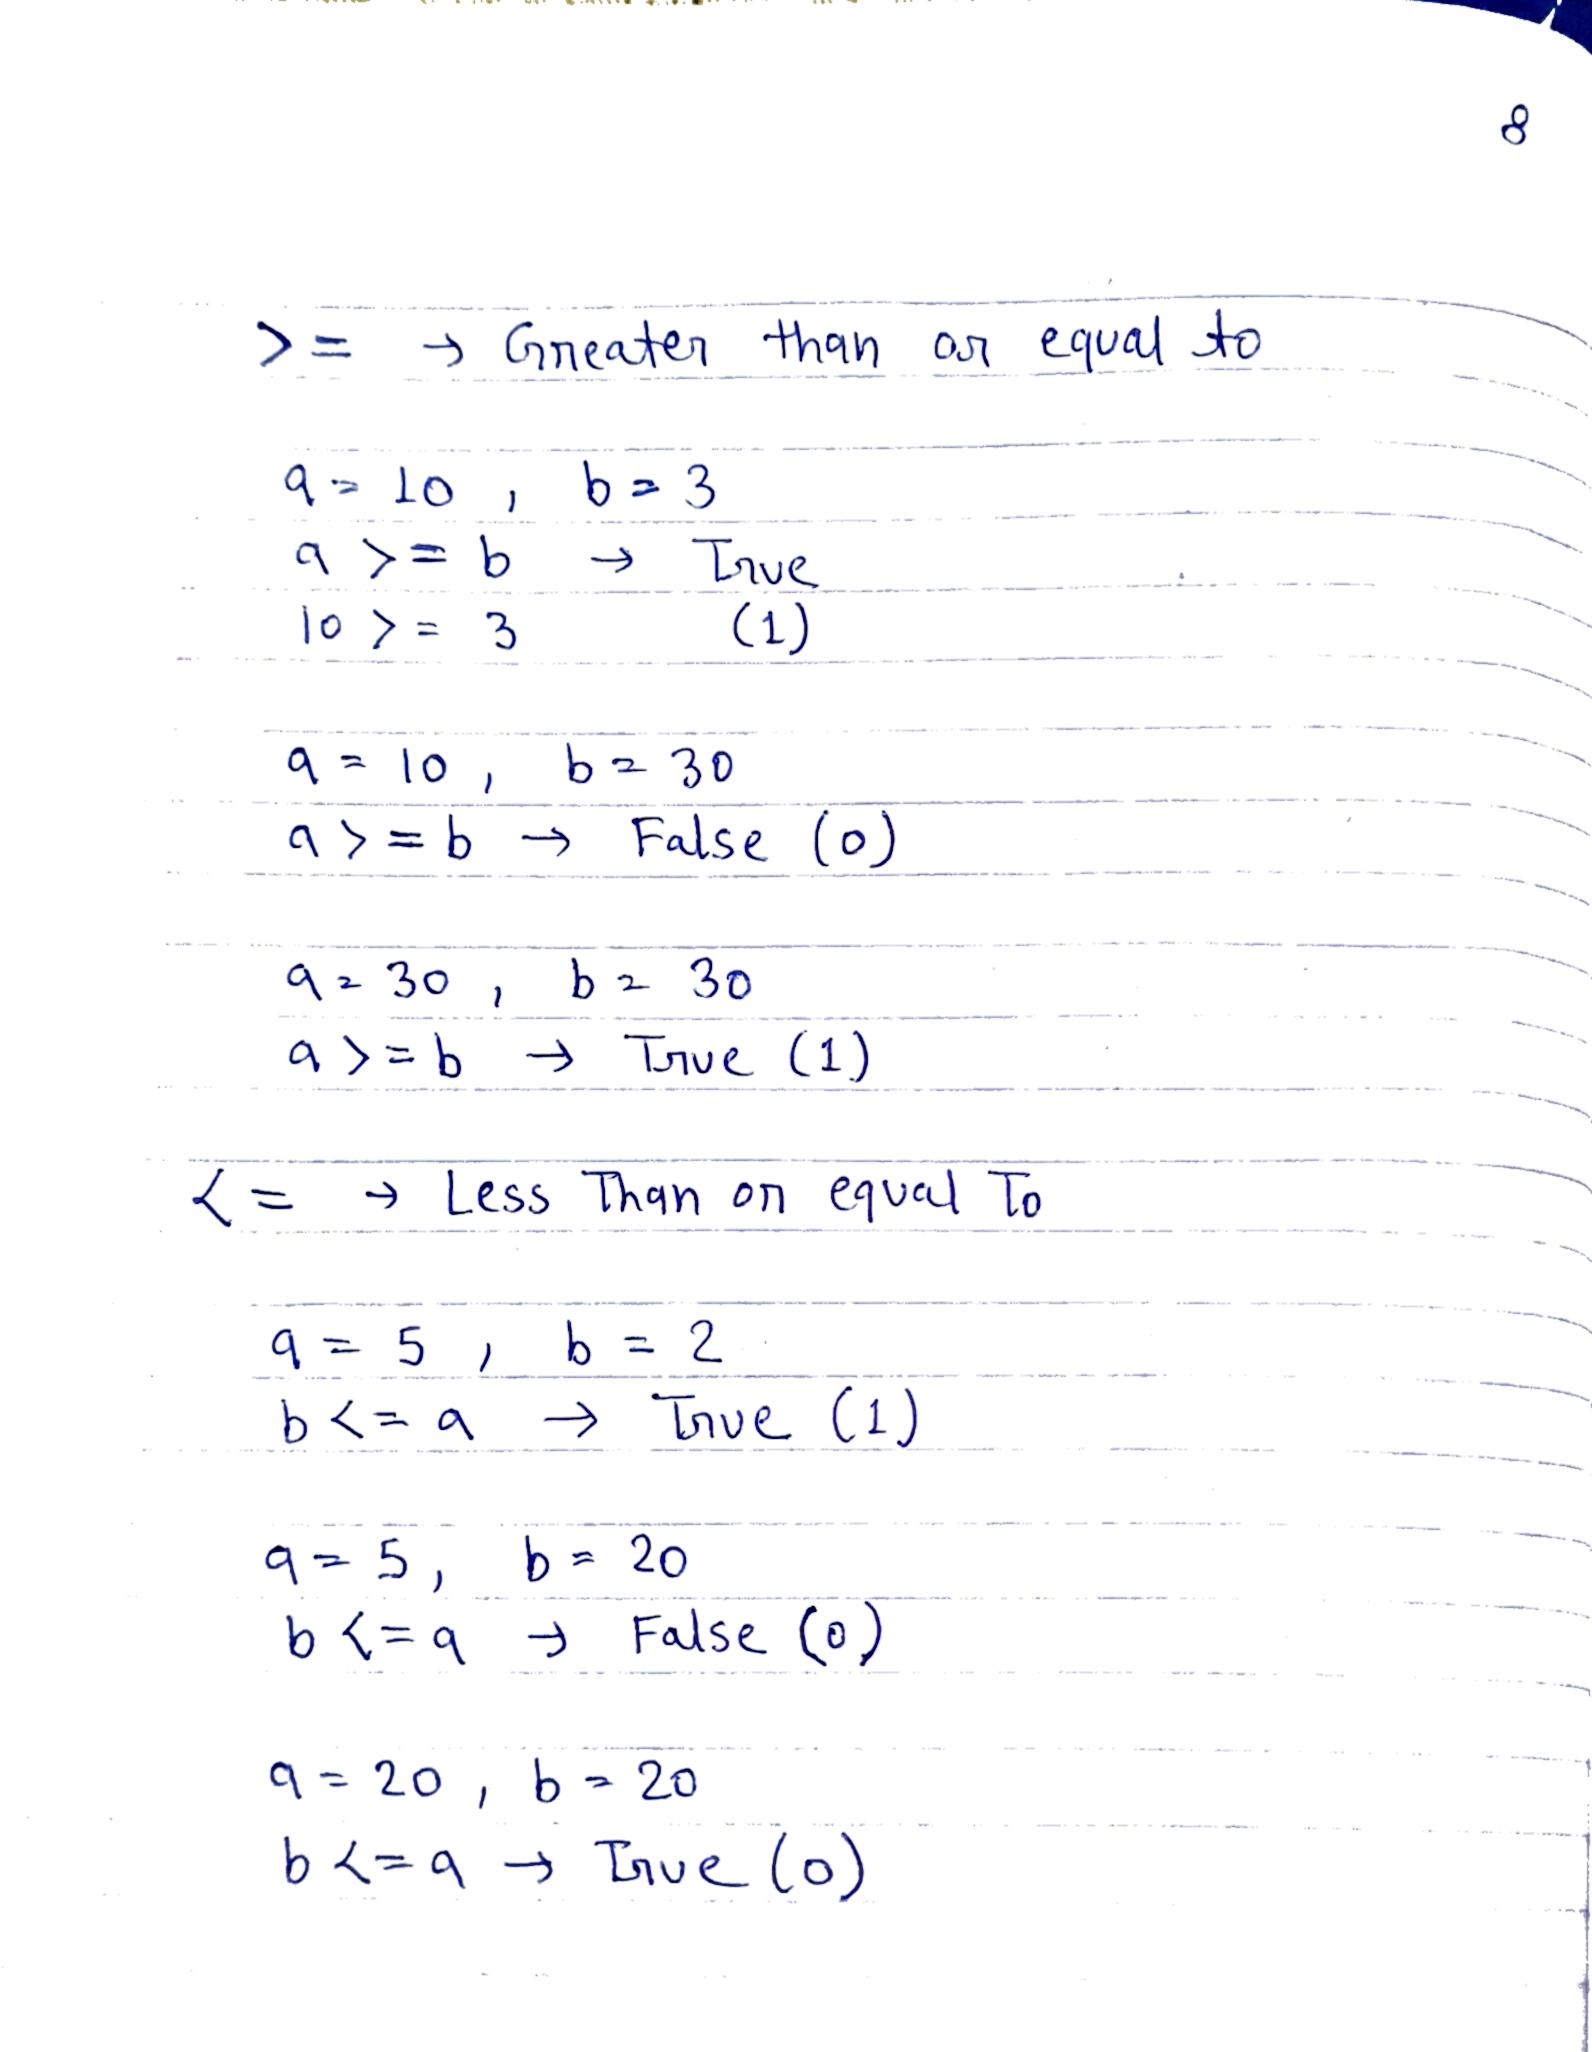 8
>= → Greater than or equal to
a = 10 , b = 3
a >= b → True
10 >= 3 (1)
a = 10 , b = 30
a >= b → False (0)
a = 30 , b = 30
a >= b → True (1)
<= → Less Than or equal To
a = 5 , b = 2
b <= a → True (1)
a = 5, b = 20
b <= a → False (0)
a = 20 , b = 20
b <= a → True (0)